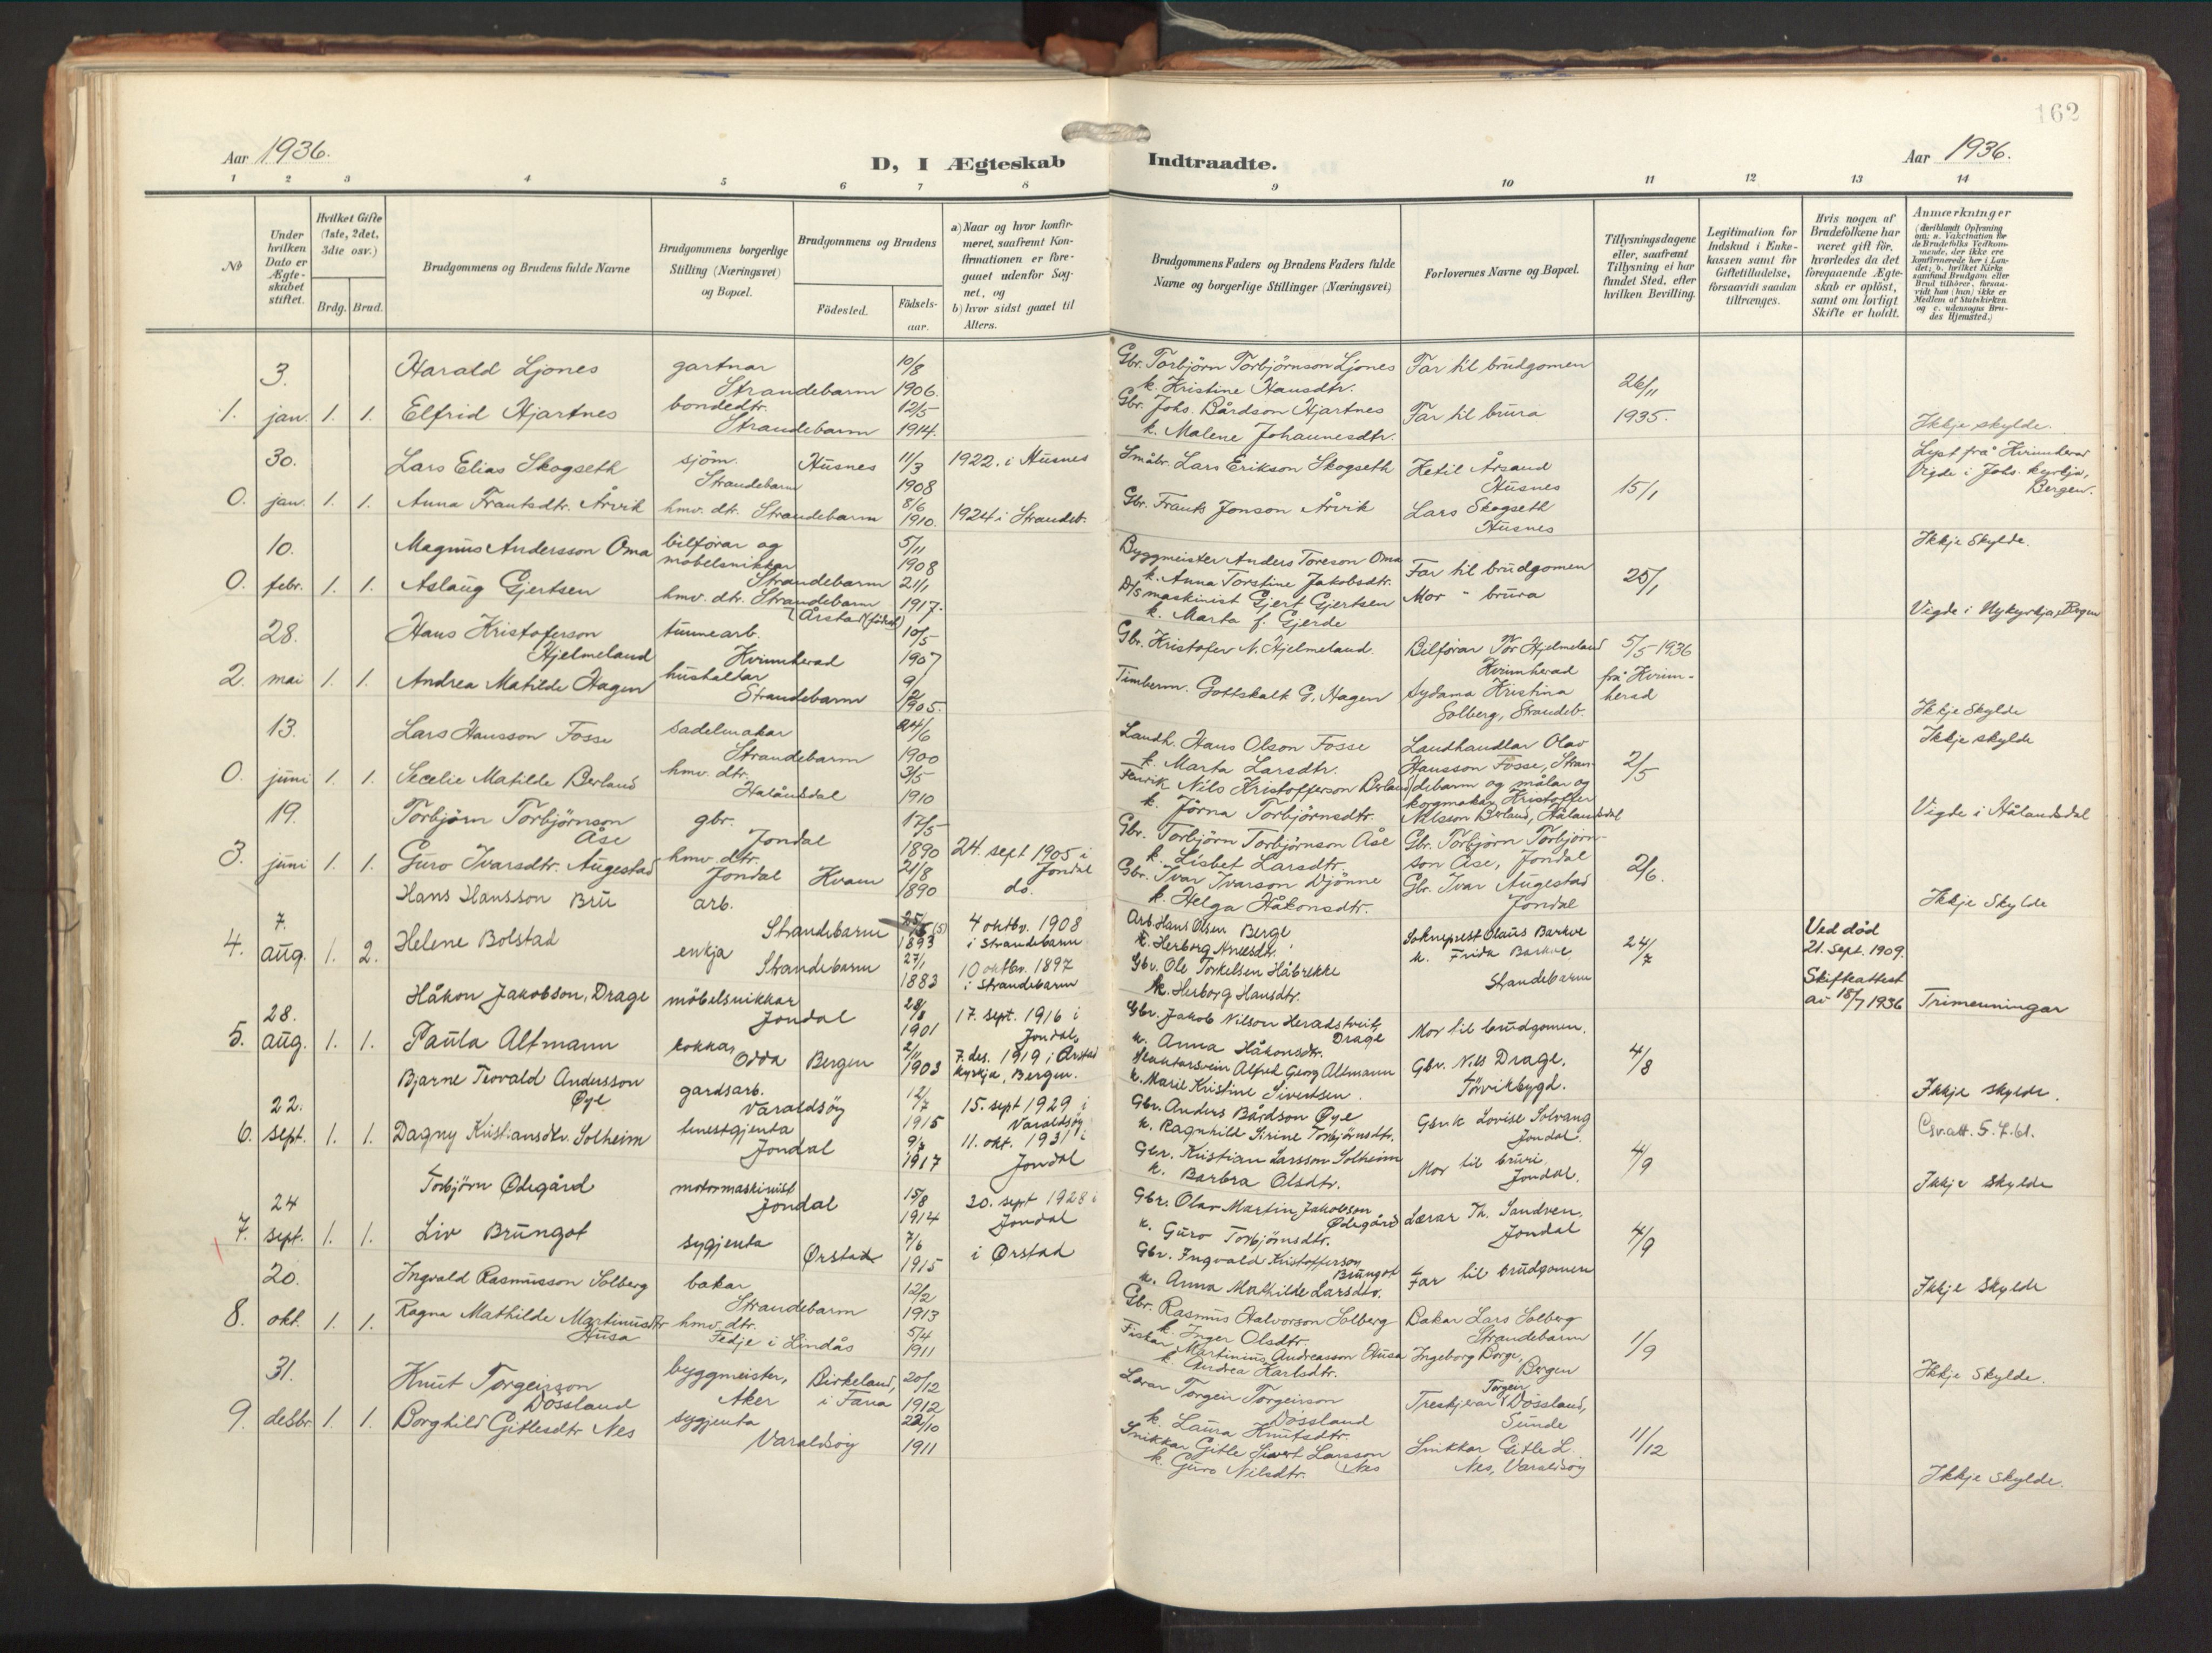 162
Aar 1936.
D, I Ægteskab Indtraadte.
Aar 1936.
1 2 3 4 5 6 7 8 9 10 11 12 13 14
No
Under hvilken Dato er Ægteskabet stiftet.
Hvilket Gifte (1ste, 2det, 3die osv.)
Brdg. Brud.
Brudgommens og Brudens fulde Navne
Brudgommens borgerlige Stilling (Næringsvei) og Bopæl.
Brudgommens og Brudens
Födested. Födselsaar.
a) Naar og hvor konfirmeret, saafremt Konfirmationen er foregaaet udenfor Sognet, og
b) hvor sidst gaaet til Alters.
Brudgommens Faders og Brudens Faders fulde Navne og borgerlige Stillinger (Næringsvei)
Forlovernes Navne og Bopæl.
Tillysningsdagene eller, saafremt Tillysning ei har fundet Sted, efter hvilken Bevilling.
Legitimation for Indskud i Enkekassen samt for Giftetilladelse, forsaavidt saadan tiltrænges.
Hvis nogen af Brudefolkene har været gift för, hvorledes da det foregaaende Ægteskab er oplöst, samt om lovligt Skifte er holdt.
Anmærkninger
(deriblandt Oplysning om: a. Vakcination for de Brudefolks Vedkommende, der ikke ere konfirmerede her i Landet; b. hvilket Kirkesamfund Brudgom eller Brud tilhörer, forsaavidt han (hun) ikke er Medlem af Statskirken og c. udensogns Brudes Hjemsted.)
1. 3. jan. 1. 1.
Harald Ljones gartnar Strandebarm 10/8 1906.
Gbr. Torbjörn Torbjörnson Ljones
k. Kristine Hansdtr.
Far til brudgomen
26/11 1935.
Elfrid Hjartnes bondedtr. Strandebarm 12/5 1914.
Gbr. Johs. Bårdson Hjartnes
k. Malene Johannesdtr.
Far til brura
Ikkje skylde.
0. 30. jan. 1. 1.
Lars Elias Skogseth sjöm. Strandebarm Husnes 11/3 1908 1922. i Husnes
Småbr. Lars Erikson Skogseth
Ketil Årsand Husnes
15/1
Lyst frå Kvinnherad
Vigde i Johs. kyrkja, Bergen.
Anna Frantsdtr. Årvik hmv. dtr. Strandebarm 8/6 1910. 1924 i Strandeb.
Gbr. Frants Jonson Årvik
Lars Skogseth Husnes
Ikkje Skylde.
0. 10. febr. 1. 1.
Magnus Andersson Oma bilförar og möbelsnikkar Strandebarm 5/11 1908
Byggmeister Anders Toreson Oma
k. Anna Torstine Jakobsdtr.
Far til brudgomen
25/1
Aslaug Gjertsen hmv. dtr. Strandebarm (Årstad (födest) 21/1 1917.
D/S maskinist Gjert Gjertsen
k. Marta f. Gjerde
Mor " brura
Vigde i Nykyrkja, Bergen
2. 28. mai 1. 1.
Hans Kristoferson Hjelmeland tunnearb. Kvinnherad 10/5 1907
Gbr. Kristofer N. Hjelmeland.
Bilförar Tör Hjelmeland Kvinnherad
5/5 1936 frå Kvinnherad
Andrea Matilde Hagen hushaldar Strandebarm 9/12 1905.
Timberm. Gottskalk G. Hagen
sydama Kristina Solberg, Strandeb.
Ikkje Skylde
0. 13. juni 1. 1.
Lars Hansson Fosse sadelmakar Strandebarm 24/6 1900
Landh. Hans Olson Fosse
k. Marta Larsdtr.
Landhandlar Olav Hansson Fosse, Strandebarm og målar og
2/5
Ikkje skylde
Secelie Matilde Berland hmv. dtr. Halåndsdal 3/5 1910
Nils Kristofferson Berland
k. Jörna Torbjörnsdtr.
korgmakar Kristoffer Nilsson Berland, Hålandsdal
Vigde i Hålandsdal
3. 19. juni 1. 1.
Torbjörn Torbjörnson Åse gbr. Jondal 17/5 1890 24. sept 1905 i Jondal
Gbr. Torbjörn Torbjörnson Åse
k. Lisbet Larsdtr.
Gbr. Torbjörn Torbjörnson Åse, Jondal
2/6.
Guro Ivarsdtr. Augestad hmv. dtr. Jondal Kvam 21/8 1890 do.
Gbr. Ivar Ivarson Djönne
k. Helga Håkonsdtr.
Gbr. Ivar Augestad Jondal
Ikkje Skylde
4. 7. aug. 1. 2.
Hans Hansson Bru arb. Strandebarm 25/5 (5) 1893 4 oktbr. 1908 i Strandebarm
Arb Hans Olsen Berge
k. Herborg Nilsdtr.
Sokneprest Olaus Barkve
k. Frida Barkve Strandebarm
24/7
Ved död 21. sept. 1909.
Skifteattest av 18/7 1936
Helene Bolstad enkja Strandebarm 27/1 1883 10 oktbr. 1897 i Strandebarm
Gbr. Ole Torkelsen Håbrekke
k. Herborg Hansdtr.
Trimenningar
5. 28. aug. 1. 1.
Håkon Jakobson, Drage möbelsnikkar Jondal 28/8 1901 17. sept. 1916 i Jondal
Gbr. Jakob Nilson Heradstveit, Drage
k. Anna Håkonsdtr.
Mor til brudgomen.
4/8
Paula Altmann kokka, Odda Bergen 2/11 1903 7. des. 1919 i Årstad kyrkja, Bergen.
Alfred Georg Altmann
k. Marie Kristine Sivertsen.
Gbr. Nils Drage, Törvikbygd.
Ikkje skylde.
6. 22. sept. 1. 1.
Bjarne Teovald Andersson Øye gardsarb. Varaldsöy 12/7 1915 15. sept 1929 i Varaldsöy
Gbr. Anders Bårdson Øye
k. Ragnhild Sirine Torbjörnsdtr.
Gbrk Lovise Solvang Jondal.
4/9
Csv. att. 5.7.61.
Dagny Kristiansdtr. Solheim tenestgjenta Jondal 9/3 1917 11. okt. 1931 i Jondal
Gbr. Kristian Larsson Solheim
k. Barbra Olsdtr.
Mor til bruri Jondal.
Ikkje skylde
7. 24 sept. 1. 1.
Torbjörn Ødegård motormaskinist Jondal 15/8 1914 30. sept 1928 i Jondal
Gbr. Olav Martin Jakobson Ødegård
k. Guro Torbjörnsdtr.
Lærar Th. Sandven, Jondal
4/9
Liv Brungot sygjenta Ørstad 7/6 1915 i Ørstad
Gbr. Ingvald Kristofferson Brungot
k. Anna Mathilde Larsdtr.
Far til brudgomen
Ikkje Skylde
8. 20. okt. 1. 1.
Ingvald Rasmusson Solberg bakar Strandebarm 12/2 1913
Gbr. Rasmus Halvorson Solberg
k. Inger Olsdtr.
Bakar Lars Solberg Strandebarm
1/9
Ragna Mathilde Martinusdtr Husa hmv. dtr. Fedje i Lindås 5/4 1911
Fiskar Martinius Andreasson Husa
k. Andrea Karlsdtr.
Ingeborg Borge, Bergen
Ikkje Skylde.
9. 31. desbr. 1. 1.
Knut Torgeirson Dössland byggmeister, Aker Birkeland, i Fana 20/12 1912
Lærar Torgeir Torgeirson Dössland
k. Laura Knutsdtr.
Treskjerar Torgeir Dössland, Sunde
11/12
Borghild Gitlesdtr Nes sygjenta Varaldsöy 22/10 1911
Snikkar Gitle Sivert Larsson Nes
k. Guro Nilsdtr.
Snikkar Gitle L. Nes, Varaldsöy
Ikkje skylde.